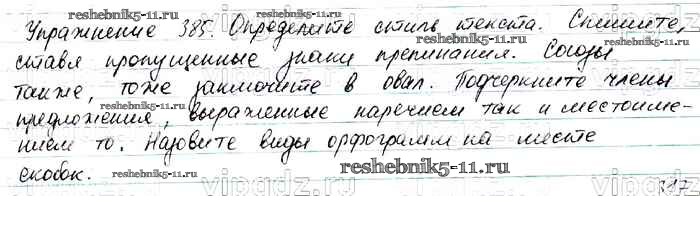 Упражнение 385. Определите стиль текста. Спишите,
ставя пропущенные знаки препинания. Союзы
также, тоже заключите в овал. Подчеркните члены
предложения, выраженные наречием так и местоиме-
нием то. Назовите виды орфограмм на месте
скобок.
reshebnik5-11.ru
reshebnik5-11.ru
reshebnik5-11.ru
reshebnik5-11.ru
reshebnik5-11.ru
reshebnik5-11.ru
vipadz.ru
vipadz.ru
vipadz.ru
317